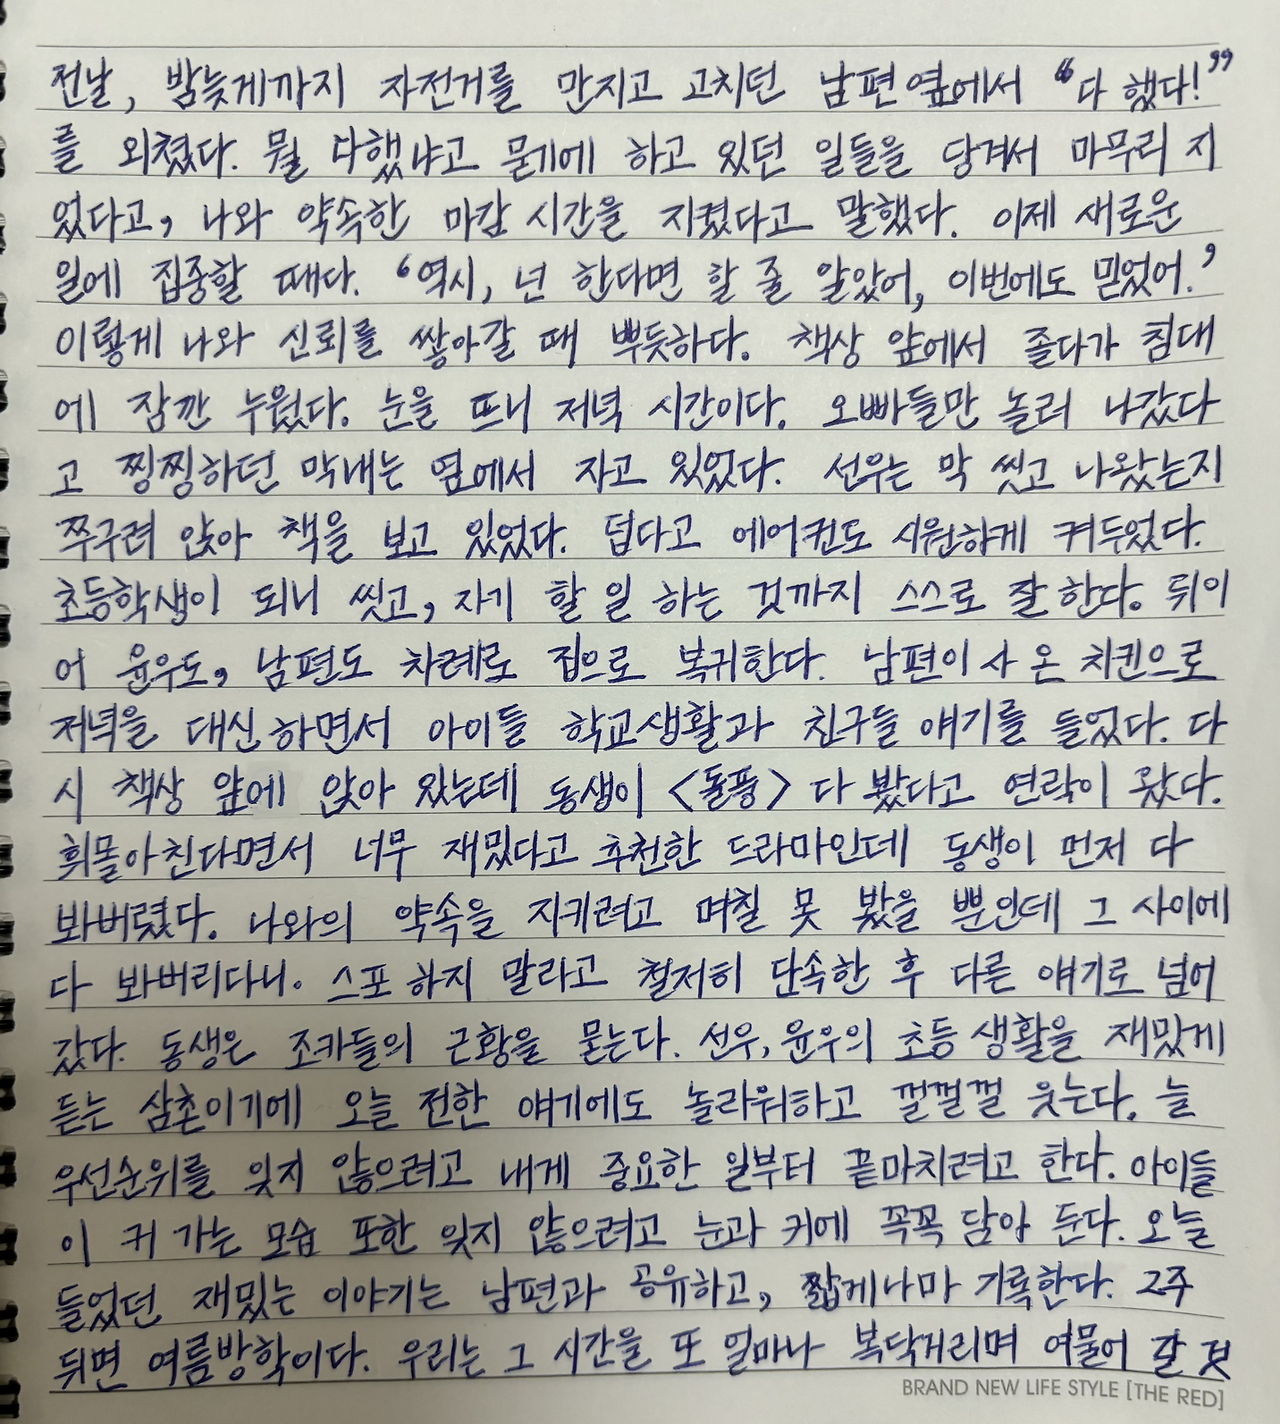 전날, 밤늦게까지 자전거를 만지고 고치던 남편 옆에서 “다 했다!”
를 외쳤다. 뭘 다했냐고 묻기에 하고 있던 일들을 당겨서 마무리 지
었다고, 나와 약속한 마감 시간을 지켰다고 말했다. 이제 새로운
일에 집중할 때다. ‘역시, 넌 한다면 할 줄 알았어, 이번에도 믿었어.’
이렇게 나와 신뢰를 쌓아갈 때 뿌듯하다. 책상 앞에서 졸다가 침대
에 잠깐 누웠다. 눈을 뜨니 저녁 시간이다. 오빠들만 놀러 나갔다
고 찡찡하던 막내는 옆에서 자고 있었다. 선우는 막 씻고 나왔는지
쭈구려 앉아 책을 보고 있었다. 덥다고 에어컨도 시원하게 켜두었다.
초등학생이 되니 씻고, 자기 할 일 하는 것까지 스스로 잘 한다. 뒤이
어 윤우도, 남편도 차례로 집으로 복귀한다. 남편이 사 온 치킨으로
저녁을 대신하면서 아이들 학교생활과 친구들 얘기를 들었다. 다
시 책상 앞에 앉아 있는데 동생이 <돌풍> 다 봤다고 연락이 왔다.
휘몰아친다면서 너무 재밌다고 추천한 드라마인데 동생이 먼저 다
봐버렸다. 나와의 약속을 지키려고 며칠 못 봤을 뿐인데 그 사이에
다 봐버리다니. 스포 하지 말라고 철저히 단속한 후 다른 얘기로 넘어
갔다. 동생은 조카들의 근황을 묻는다. 선우, 윤우의 초등 생활을 재밌게
듣는 삼촌이기에 오늘 전한 얘기에도 놀라워하고 껄껄껄 웃는다. 늘
우선순위를 잊지 않으려고 내게 중요한 일부터 끝마치려고 한다. 아이들
이 커 가는 모습 또한 잊지 않으려고 눈과 귀에 꼭꼭 담아 둔다. 오늘
들었던 재밌는 이야기는 남편과 공유하고, 짧게나마 기록한다. 2주
뒤면 여름방학이다. 우리는 그 시간을 또 얼마나 복닥거리며 여물어 갈 것
BRAND NEW LIFE STYLE [THE RED]